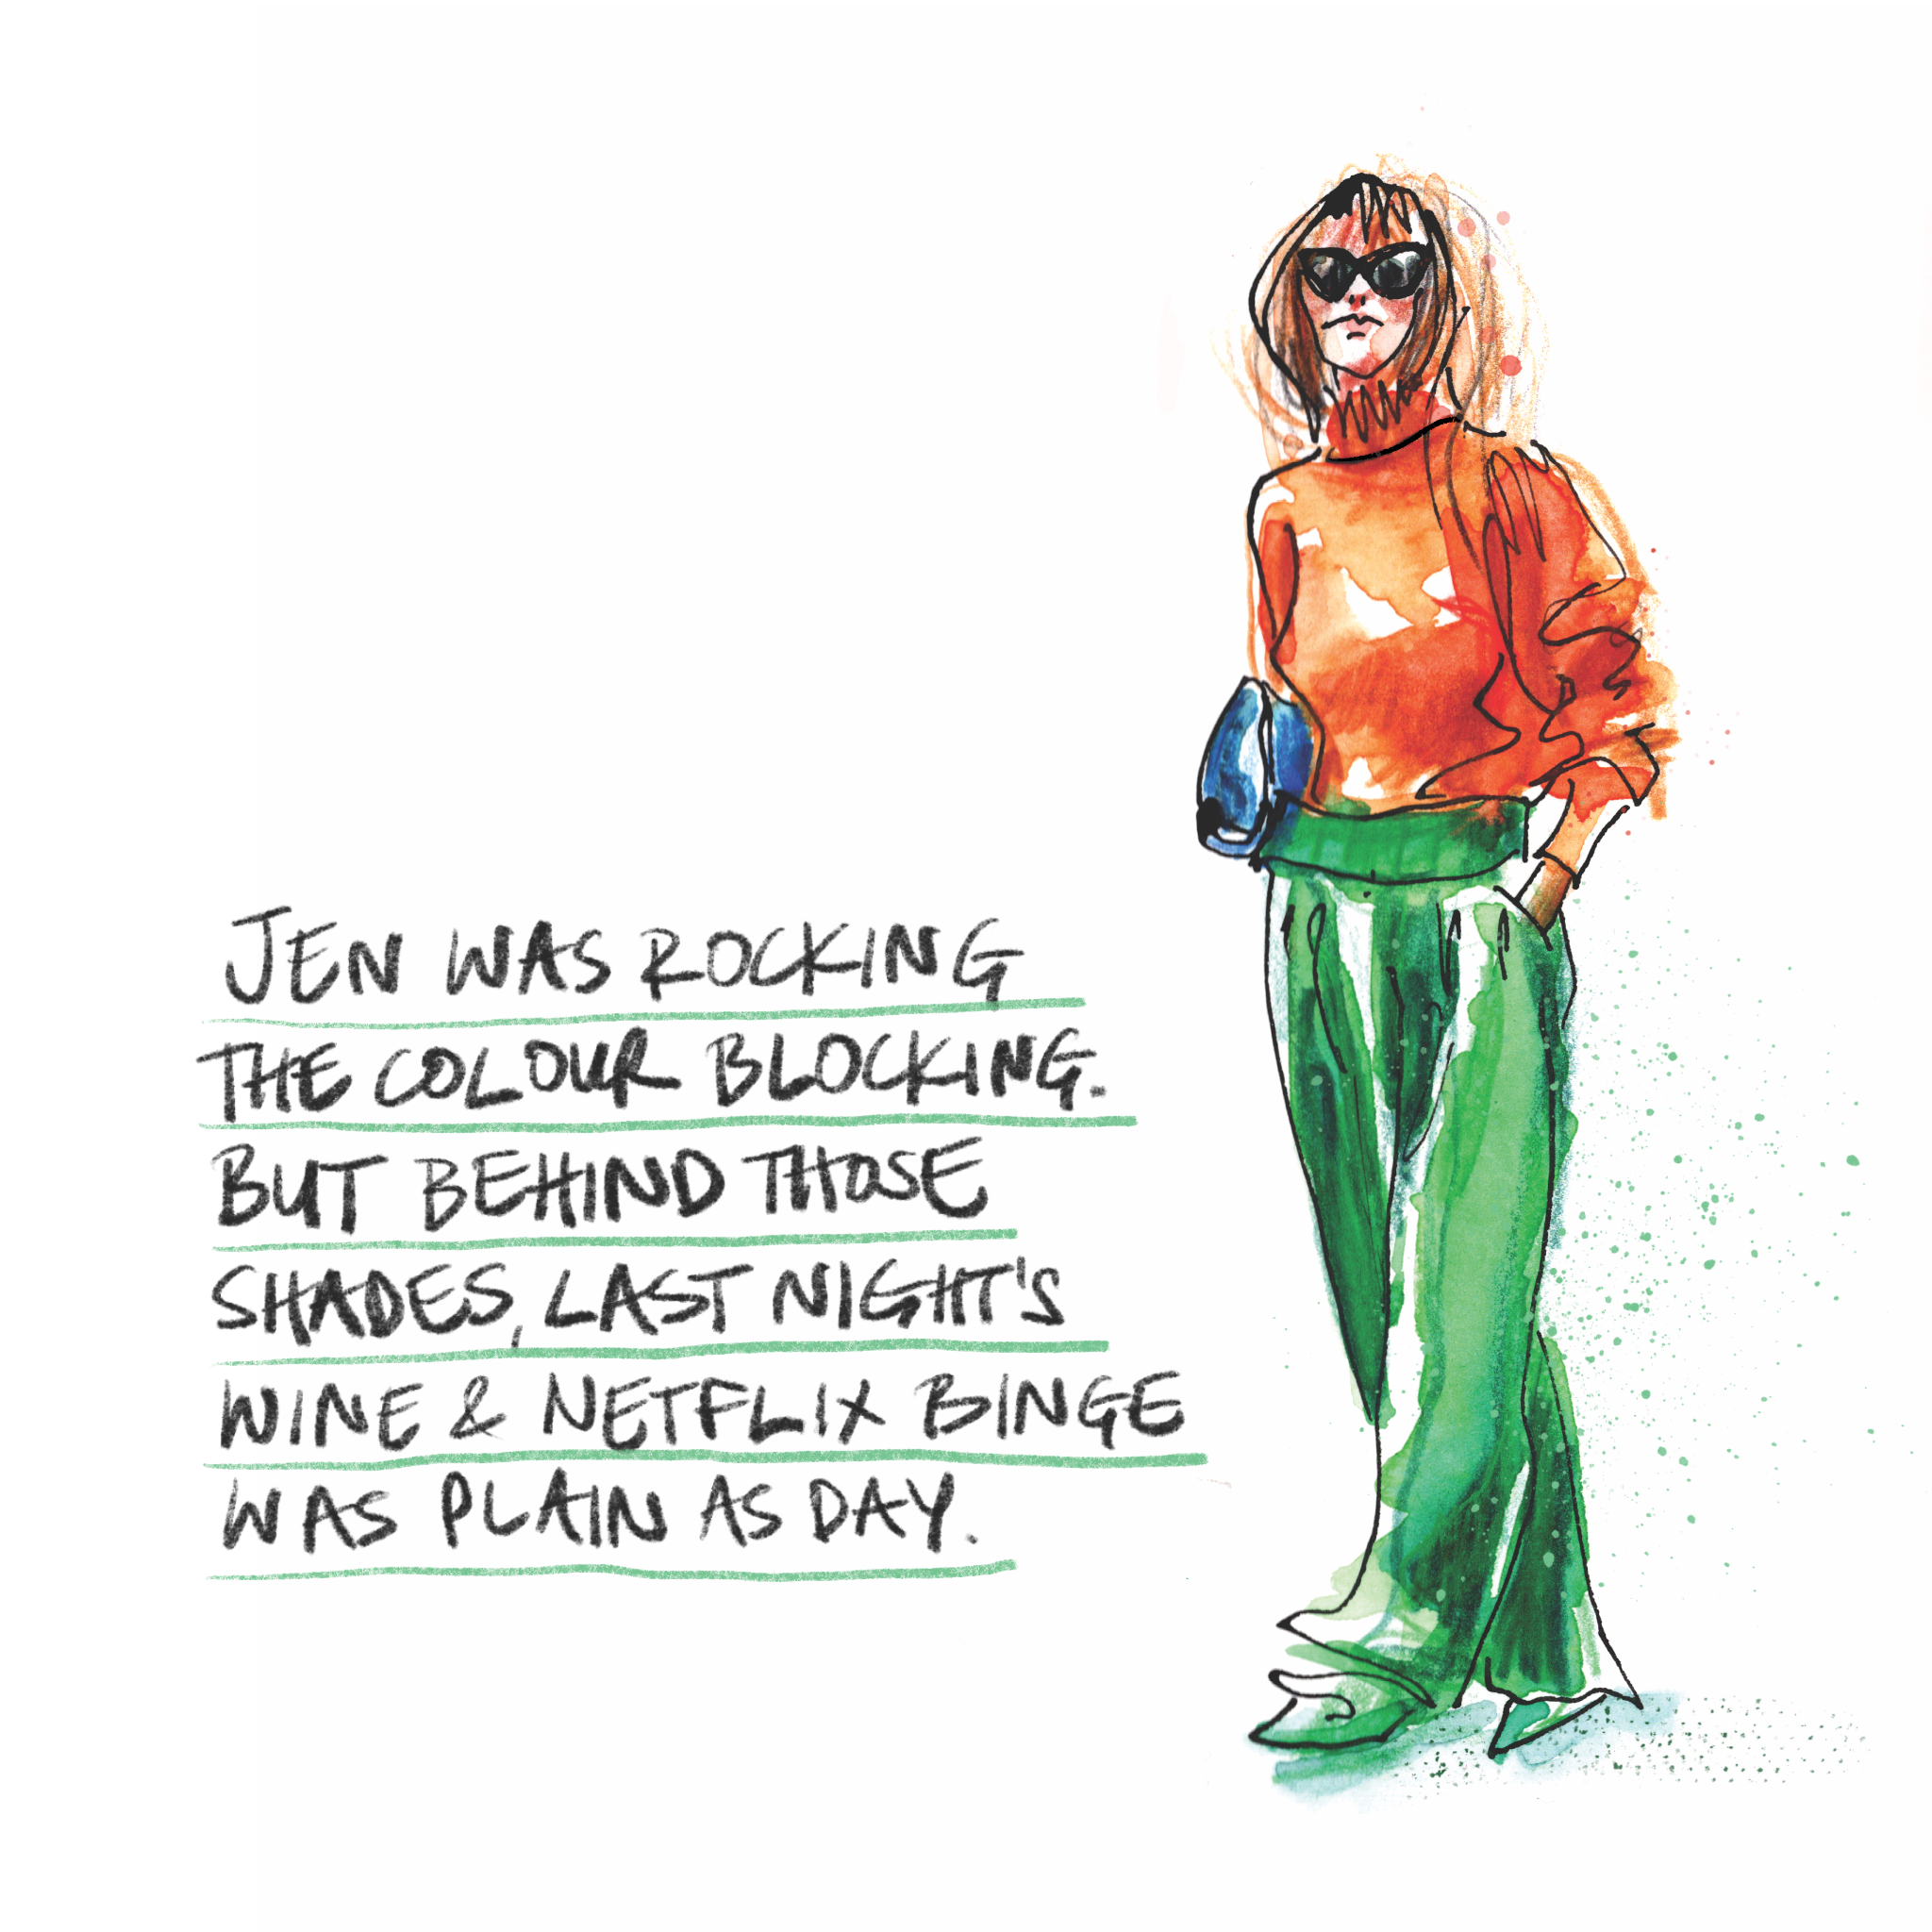 JEN WAS ROCKING
THE COLOUR BLOCKING.
BUT BEHIND THOSE
SHADES, LAST NIGHT'S
WINE & NETFLIX BINGE
WAS PLAIN AS DAY.